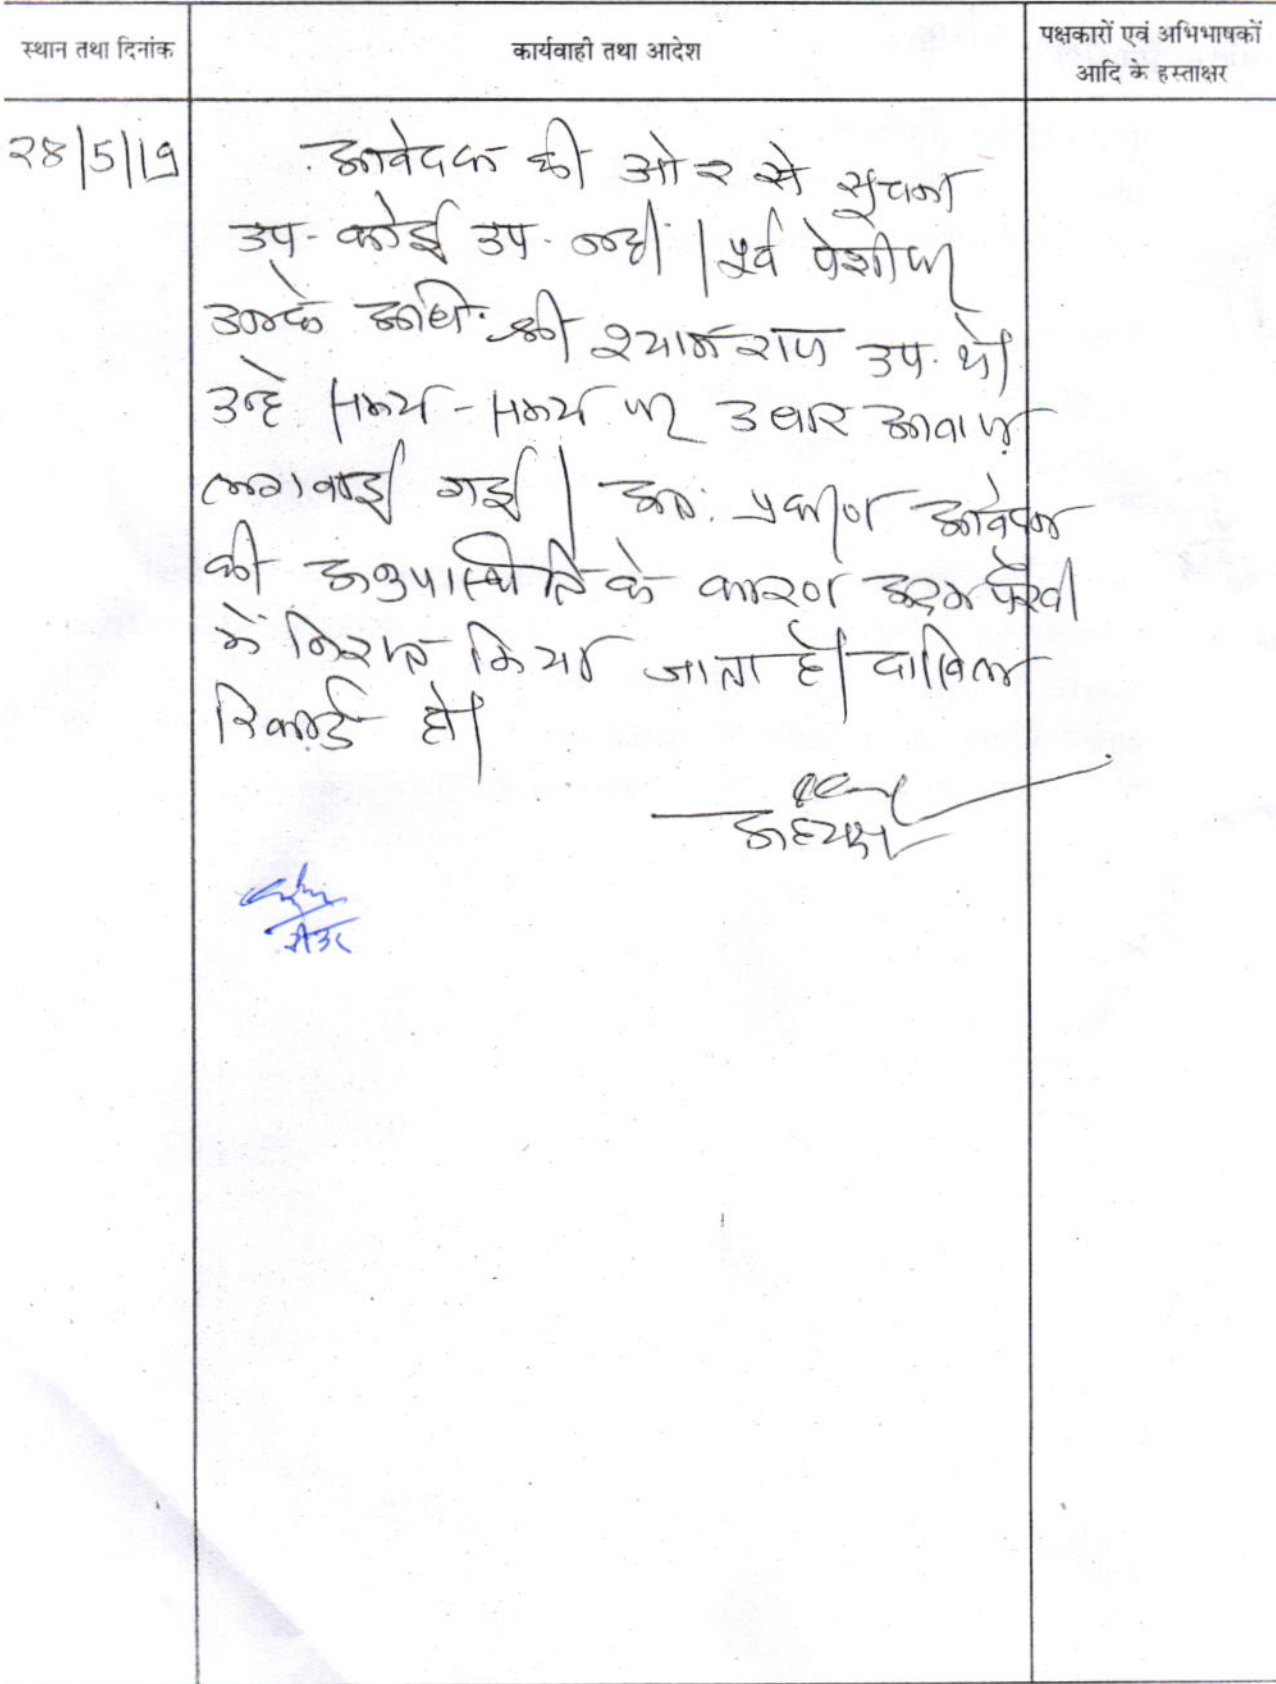 स्थान तथा दिनांक
कार्यवाही तथा आदेश
पक्षकारों एवं अभिभाषकों
आदि के हस्ताक्षर
28/5/19
आवेदक की ओर से सूचना
उप. कोई उप. नहीं। पूर्व पेशी पर
उनके अधि. श्री उप. थे।
उन्हे समय-समय पर आवाज
लगवाई गई। अतः प्रकरण आवेदक
की अनुपस्थिति के कारण अदम पैरवी
में निरस्त किया जाता है। दाखिल
रिकार्ड हो।
अध्यक्ष